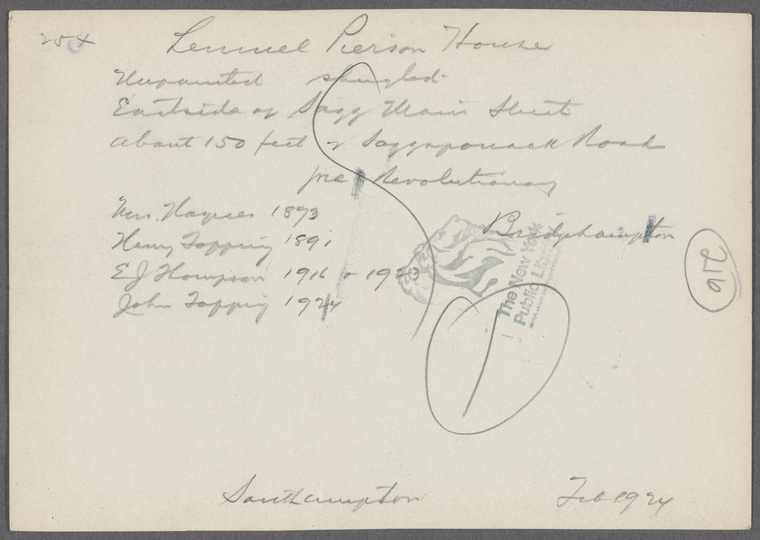 254
Lemuel Pierson House
Unpainted shingled
Eastside of Sagg Main Street
about 150 feet of Saggaponack Road
pre Revolutionary
Mrs. Haynes 1893
Bridgehampton
Henry Topping 1891
E J Thompson 1916 + 1923
John Topping 1924
The New York
Public Library
216
Southampton Feb 1924